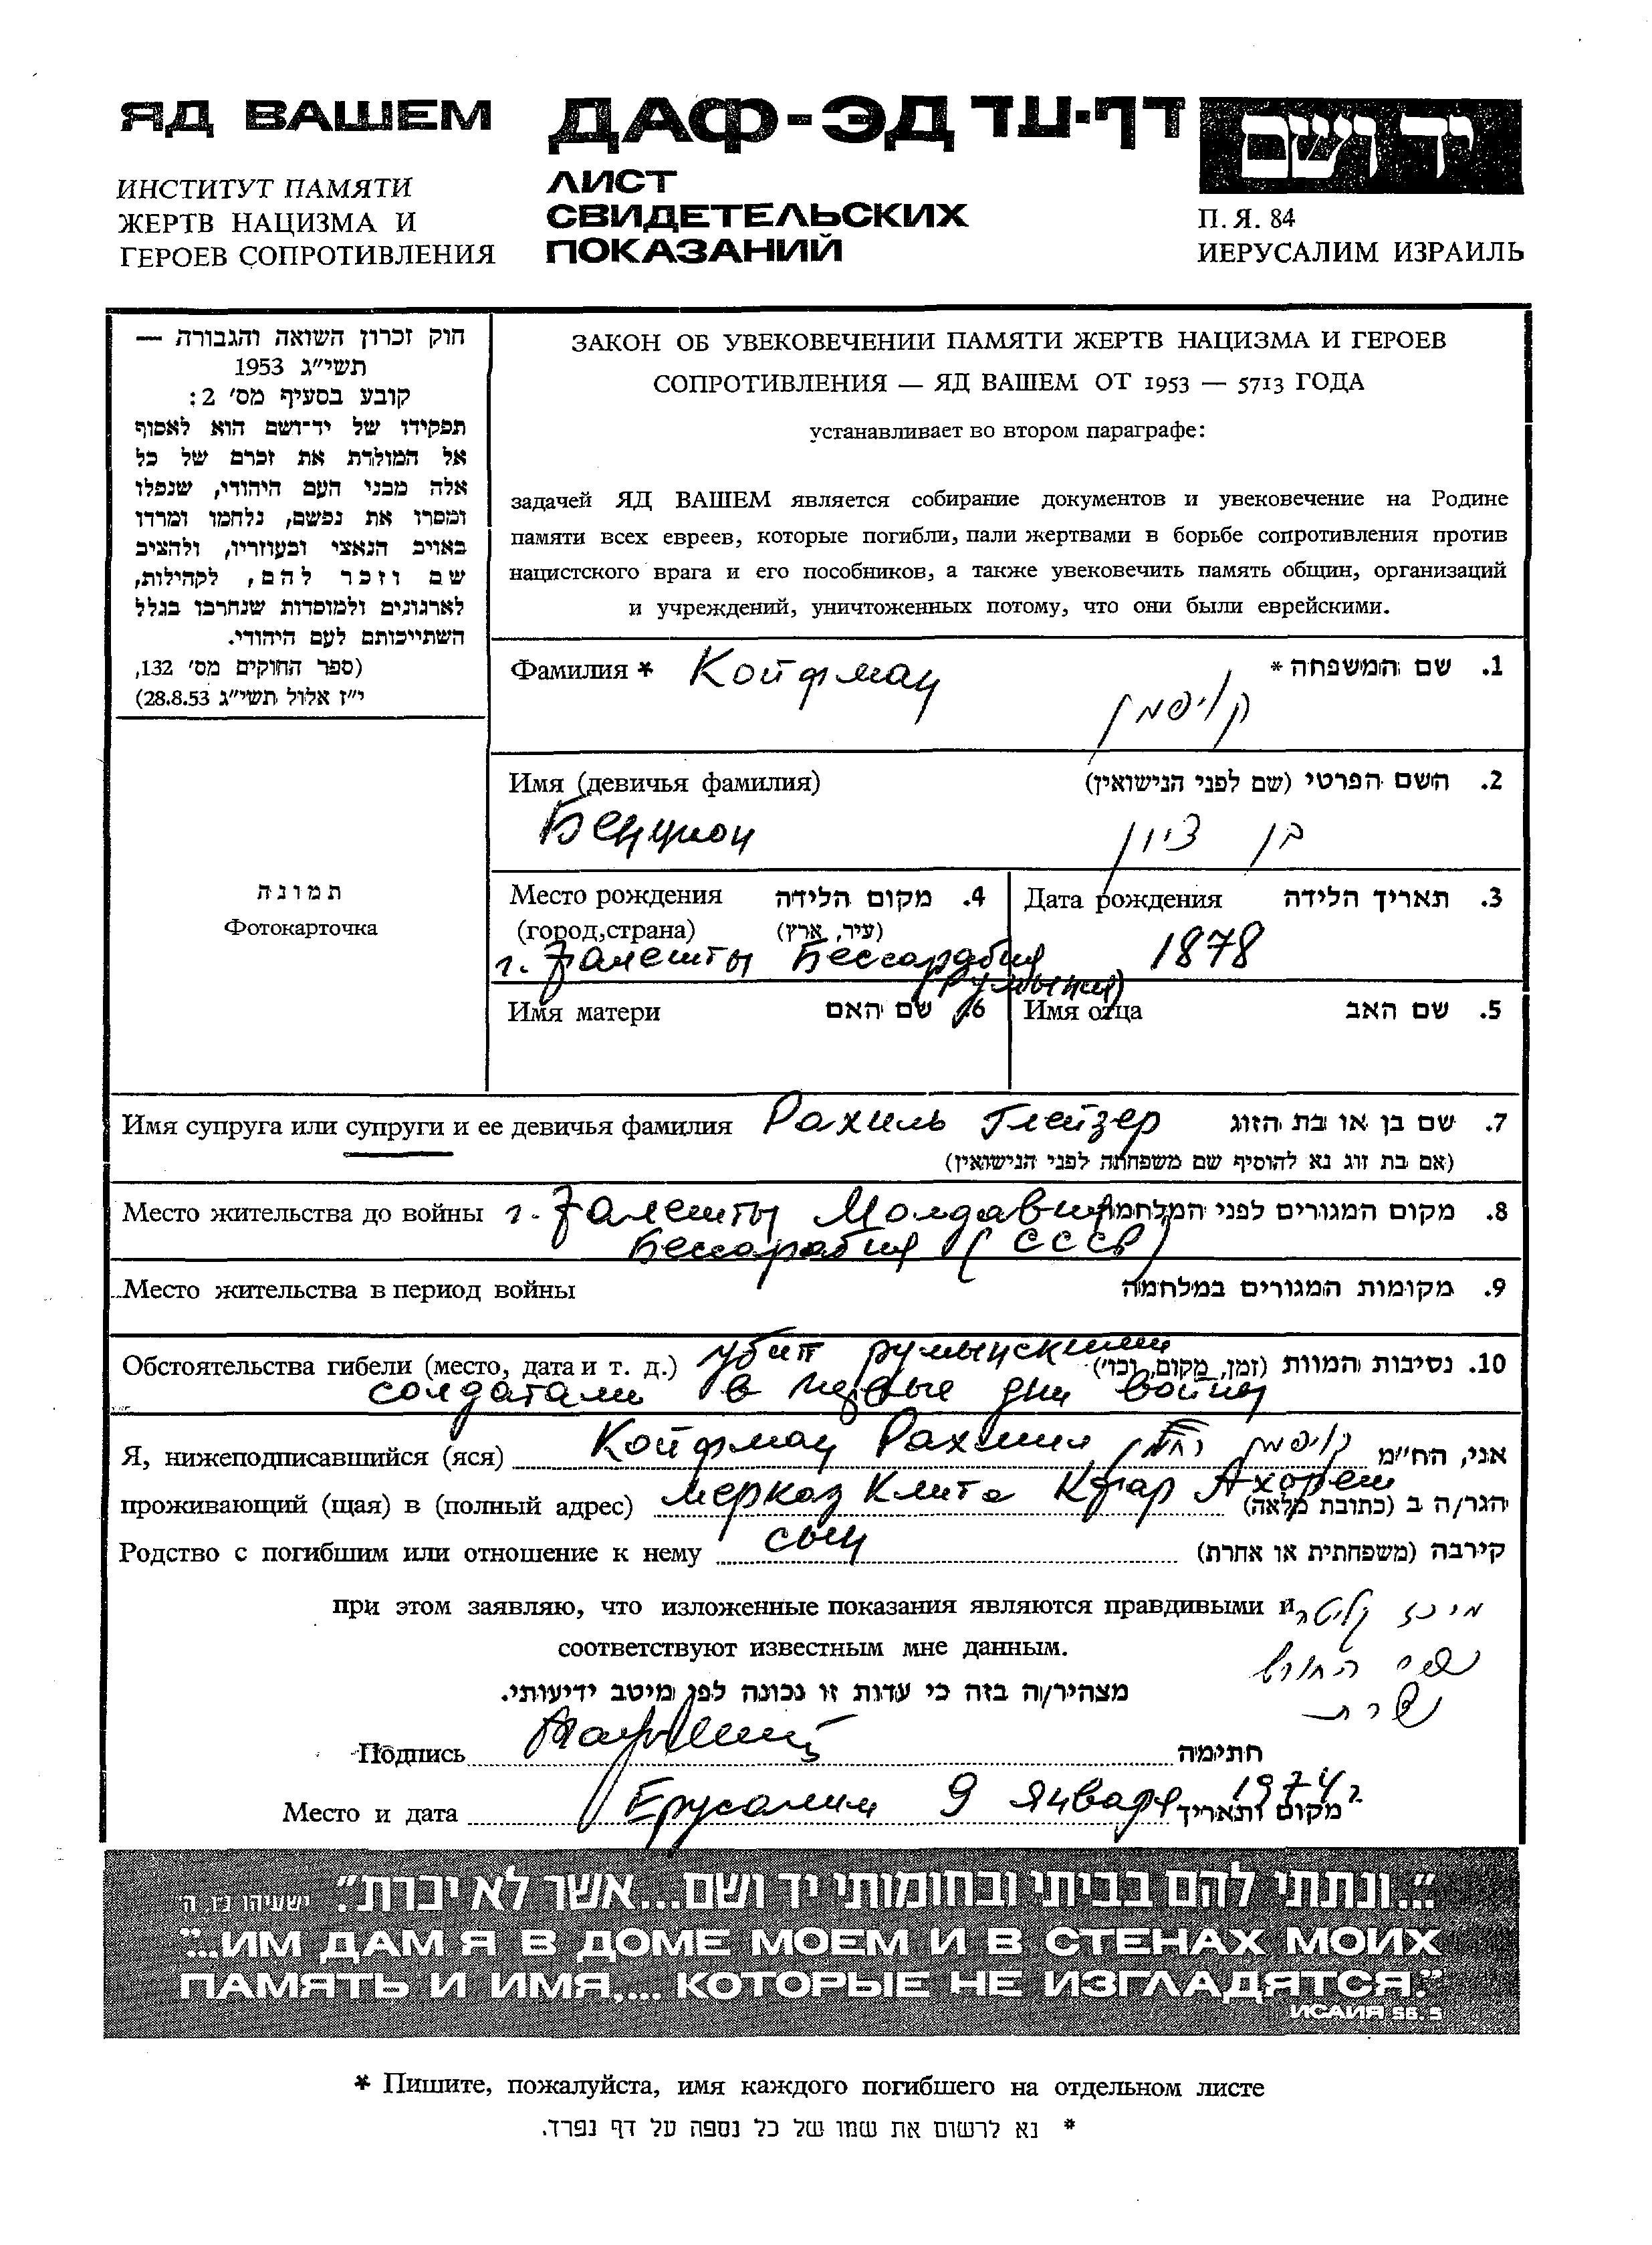 ЯД ВАШЕМ
ИНСТИТУТ ПАМЯТИ
ЖЕРТВ НАЦИЗМА И
ГЕРОЕВ СОПРОТИВЛЕНИЯ
ДАФ-ЭД דף-עד
ЛИСТ
СВИДЕТЕЛЬСКИХ
ПОКАЗАНИЙ
יד ושם
П. Я. 84
ИЕРУСАЛИМ ИЗРАИЛЬ
חוק זכרון השואה והגבורה —
תשי"ג 1953
קובע בסעיף מס' 2:
תפקידו של יד-ושם הוא לאסוף
אל המולדת את זכרם של כל
אלה מבני העם היהודי, שנפלו
ומסרו את נפשם, נלחמו ומרדו
באויב הנאצי ובעוזריו, ולהציב
שם וזכר להם, לקהילות,
לארגונים ולמוסדות שנחרבו בגלל
השתייכותם לעם היהודי.
(ספר החוקים מס' 132,
י"ז אלול תשי"ג 28.8.53)
תמונה
Фотокарточка
ЗАКОН ОБ УВЕКОВЕЧЕНИИ ПАМЯТИ ЖЕРТВ НАЦИЗМА И ГЕРОЕВ
СОПРОТИВЛЕНИЯ — ЯД ВАШЕМ ОТ 1953 — 5713 ГОДА
устанавливает во втором параграфе:
задачей ЯД ВАШЕМ является собирание документов и увековечение на Родине
памяти всех евреев, которые погибли, пали жертвами в борьбе сопротивления против
нацистского врага и его пособников, а также увековечить память общин, организаций
и учреждений, уничтоженных потому, что они были еврейскими.
Фамилия * Койфман 1. שם המשפחה *
קויפמן
Имя (девичья фамилия) 2. השם הפרטי (שם לפני הנישואין)
Бенцион בן ציון
Место рождения 4. מקום הלידה Дата рождения 3. תאריך הלידה
(город,страна) (עיר, ארץ)
г. Фалешты Бессарабия 1878
(Румыния)
Имя матери 6. שם האם Имя отца 5. שם האב
Имя супруга или супруги и ее девичья фамилия Рахиль Глейзер 7. שם בן או בת הזוג
(אם בת זוג נא להוסיף שם משפחתה לפני הנישואין)
Место жительства до войны г. Фалешты Молдавия 8. מקום המגורים לפני המלחמה
Бессарабия (СССР)
Место жительства в период войны 9. מקומות המגורים במלחמה
Обстоятельства гибели (место, дата и т. д.) убит румынскими 10. נסיבות המוות (זמן, מקום, וכו')
солдатами в первые дни войны
Я, нижеподписавшийся (яся) Койфман Рахмил קויפמן אני, הח"מ
проживающий (щая) в (полный адрес) мерказ Клита Кфар Ахореш הגר/ה ב (כתובת מלאה)
Родство с погибшим или отношение к нему сын קירבה (משפחתית או אחרת)
при этом заявляю, что изложенные показания являются правдивыми и
соответствуют известным мне данным.
מצהיר/ה בזה כי עדות זו נכונה לפי מיטב ידיעותי.
מרכז קליטה
כפר החורש
נצרת
Подпись חתימה
Место и дата Ерусалим 9 января 1974 г מקום ותאריך
"..ונתתי להם בביתי ובחומותי יד ושם...אשר לא יכרת". ישעיהו נ"ו, ה'
"...ИМ ДАМ Я В ДОМЕ МОЕМ И В СТЕНАХ МОИХ
ПАМЯТЬ И ИМЯ,... КОТОРЫЕ НЕ ИЗГЛАДЯТСЯ."
ИСАИЯ 56. 5
* Пишите, пожалуйста, имя каждого погибшего на отдельном листе
* נא לרשום את שמו של כל נספה על דף נפרד.